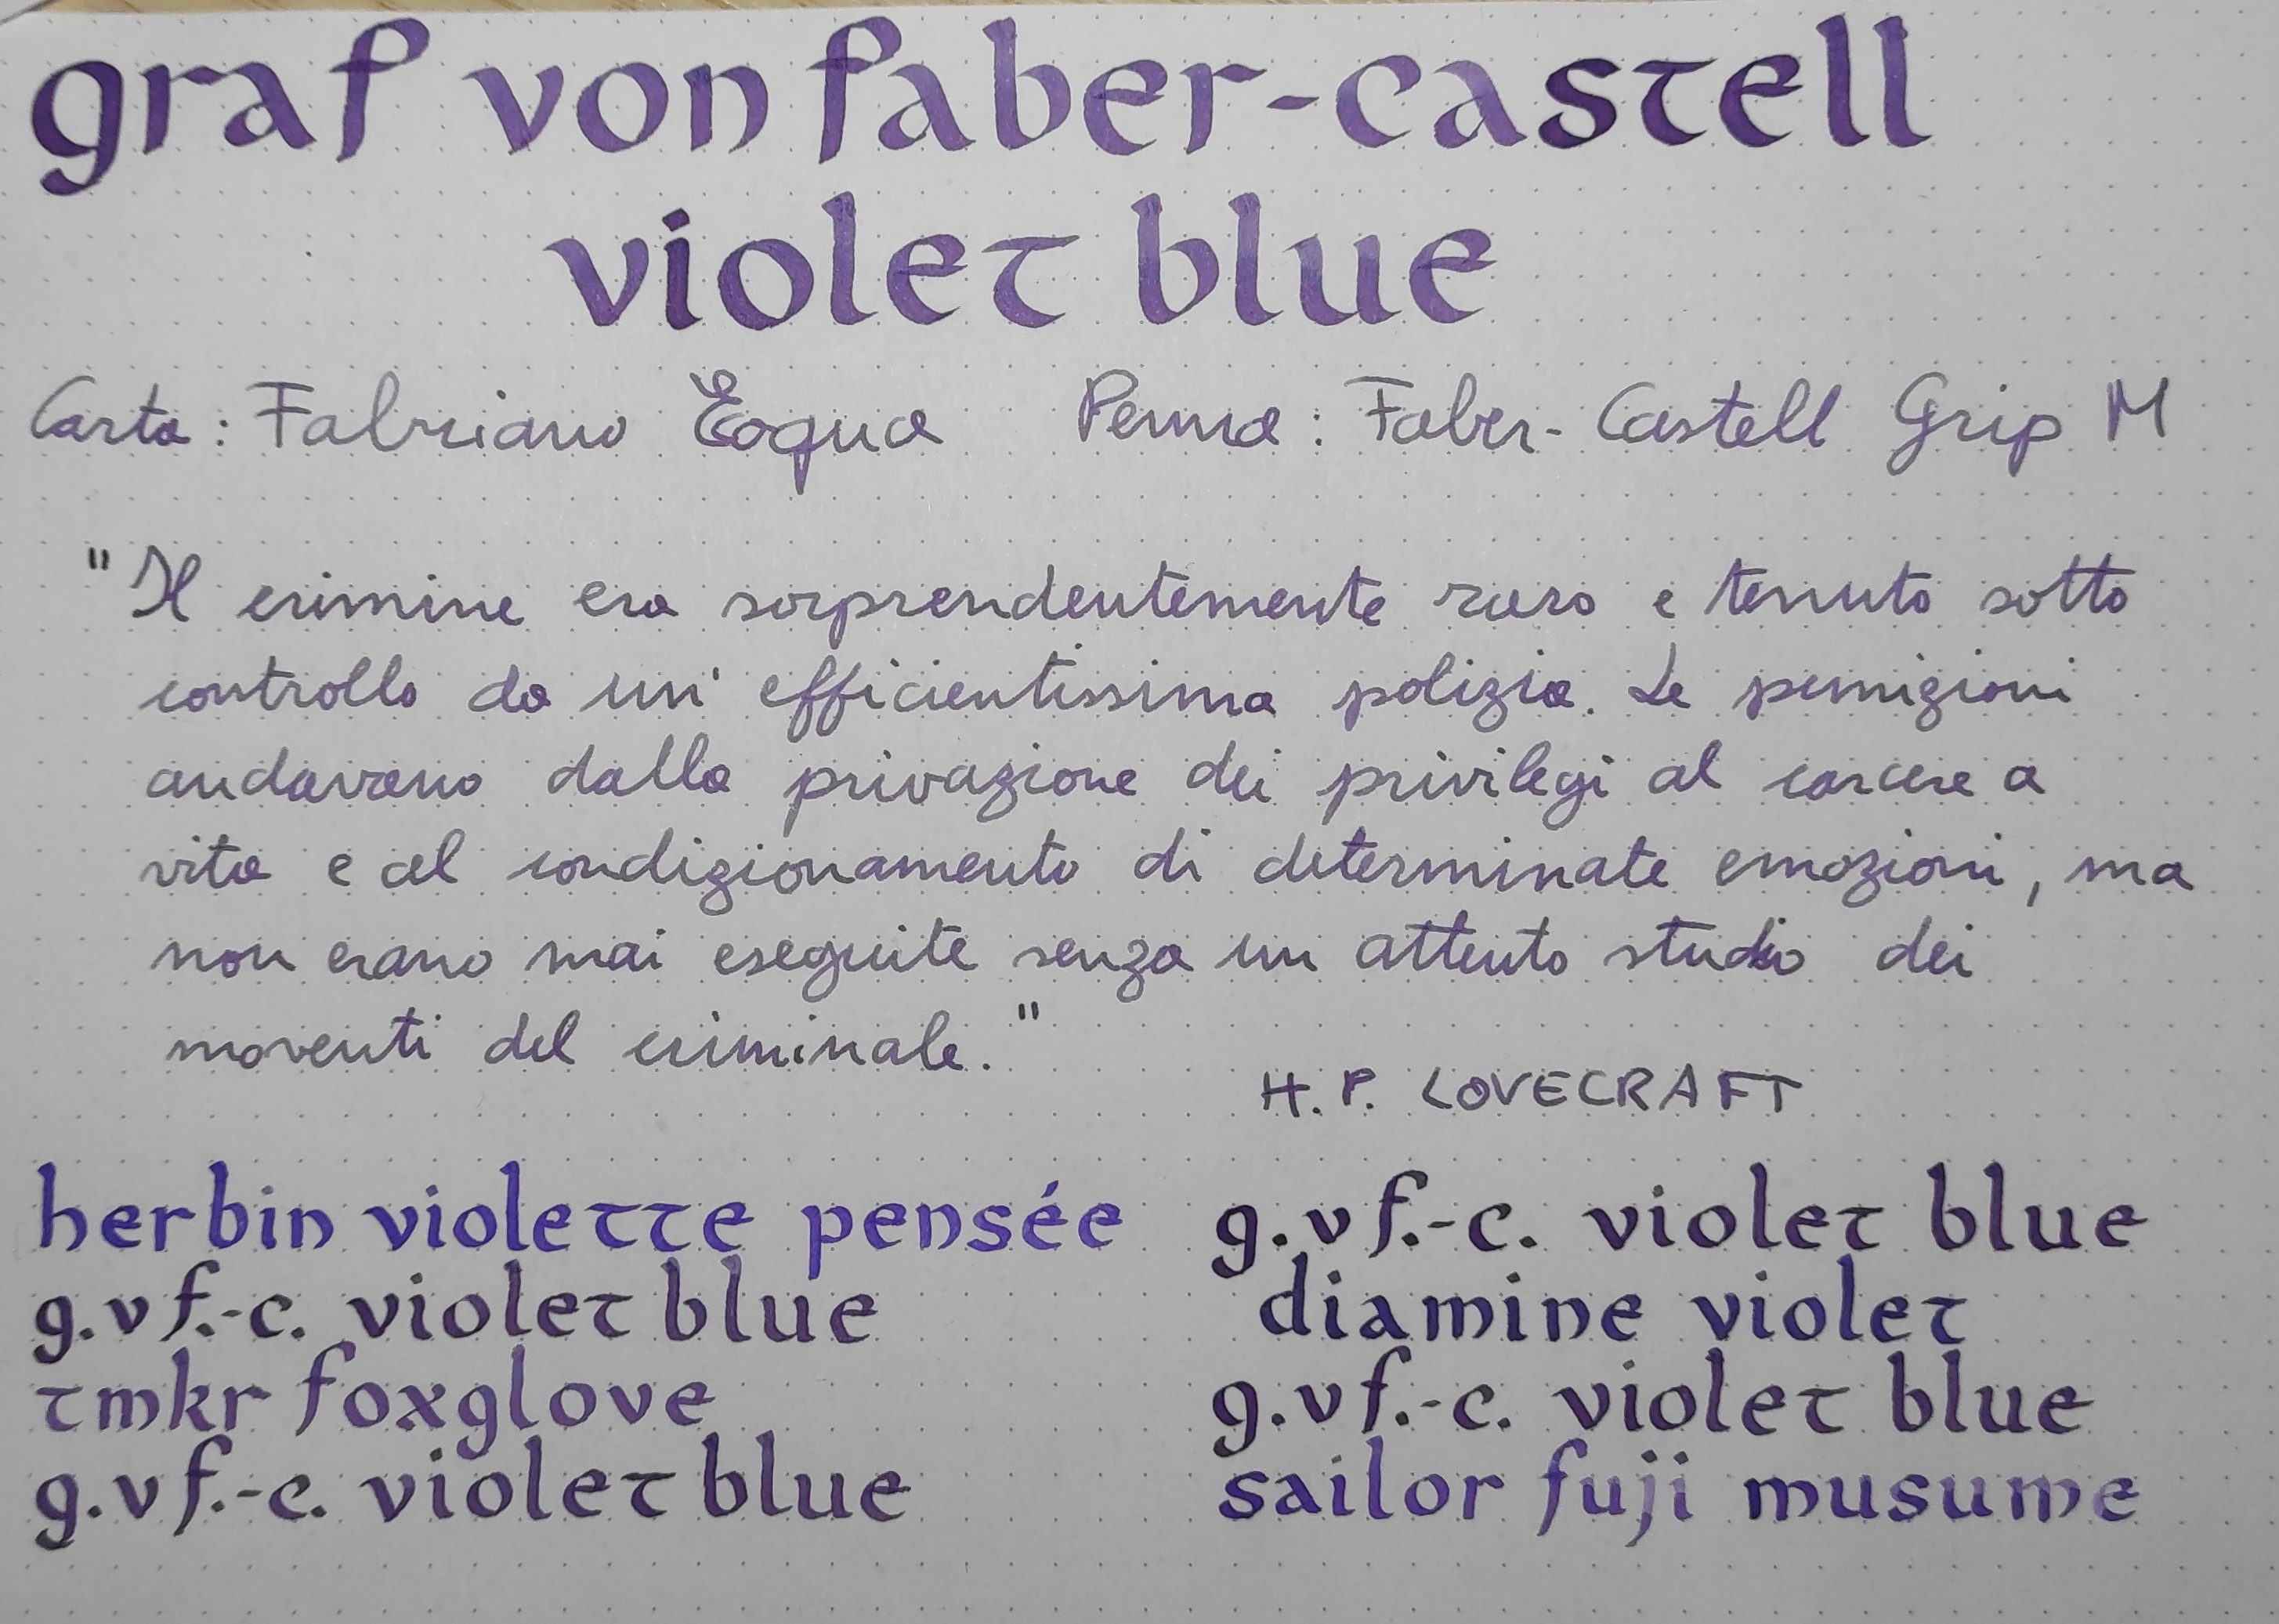 graf von faber-castell
violet blue
Carta: Fabriano Ecqua Penna: Faber-Castell Grip M
"Il crimine era sorprendentemente raro e tenuto sotto
controllo da un' efficientissima polizia. Le punizioni
andavano dalla privazione dei privilegi al carcere a
vita e al condizionamento di determinate emozioni, ma
non erano mai eseguite senza un attento studio dei
moventi del criminale."
H. P. LOVECRAFT
herbin violette pensée
g.v f.-c. violet blue
tmkr foxglove
g.v f.-c. violet blue
g.v f.-c. violet blue
diamine violet
g.v f.-c. violet blue
sailor fuji musume